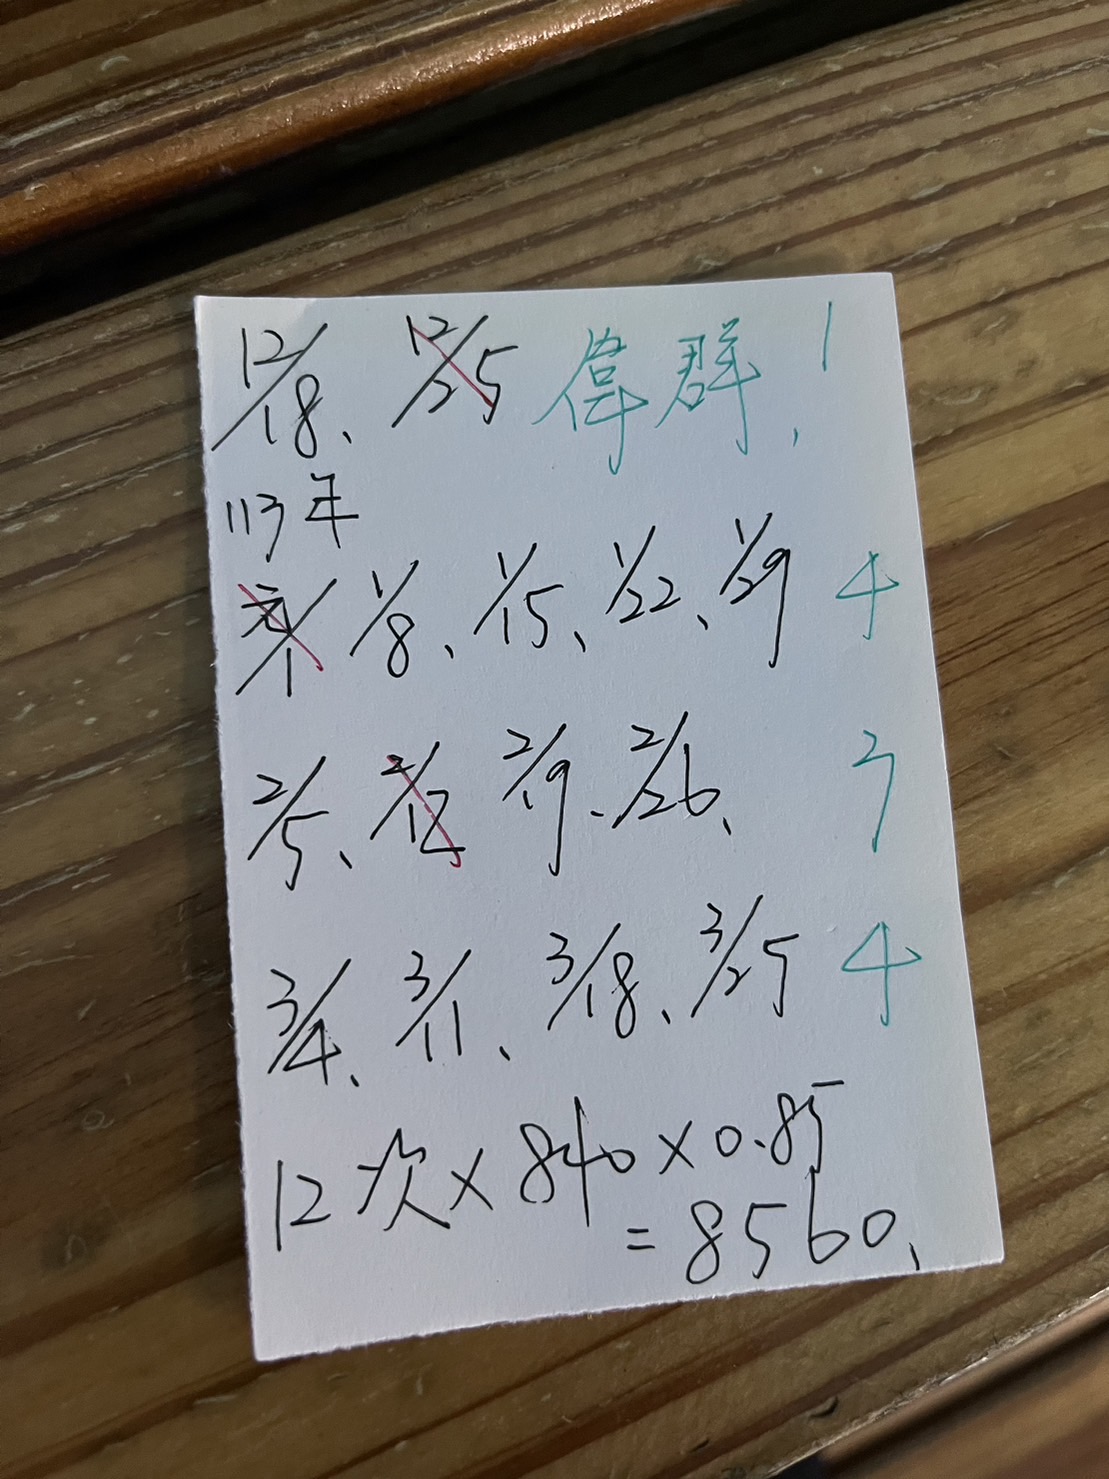 12/18、 12/25 偉群、 1
113年
元/1 1/8、1/15、1/22、1/29 4
2/5、2/12 2/19、2/26、 3
3/4、3/11、3/18、3/25 4
12次×840×0.85
=8560、